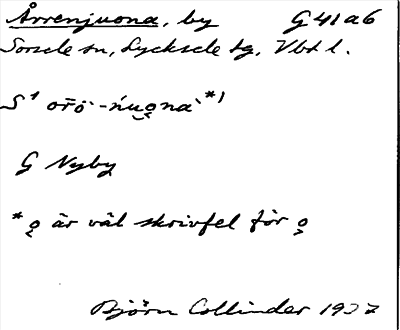 Årrenjuona, by G 41 a 6
Sorsele sn, Lycksele tg, Vbtl.
G Nyby
är väl skrivfel för
Björn Collinder 1937